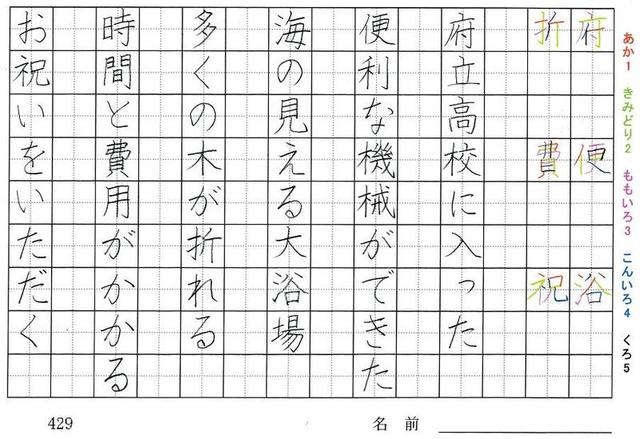 あか1 きみどり2 ももいろ3 こんいろ4 くろ5
府 便 浴
折 費 祝
府立高校に入った
便利な機械ができた
海の見える大浴場
多くの木が折れる
時間と費用がかかる
お祝いをいただく
429 名前